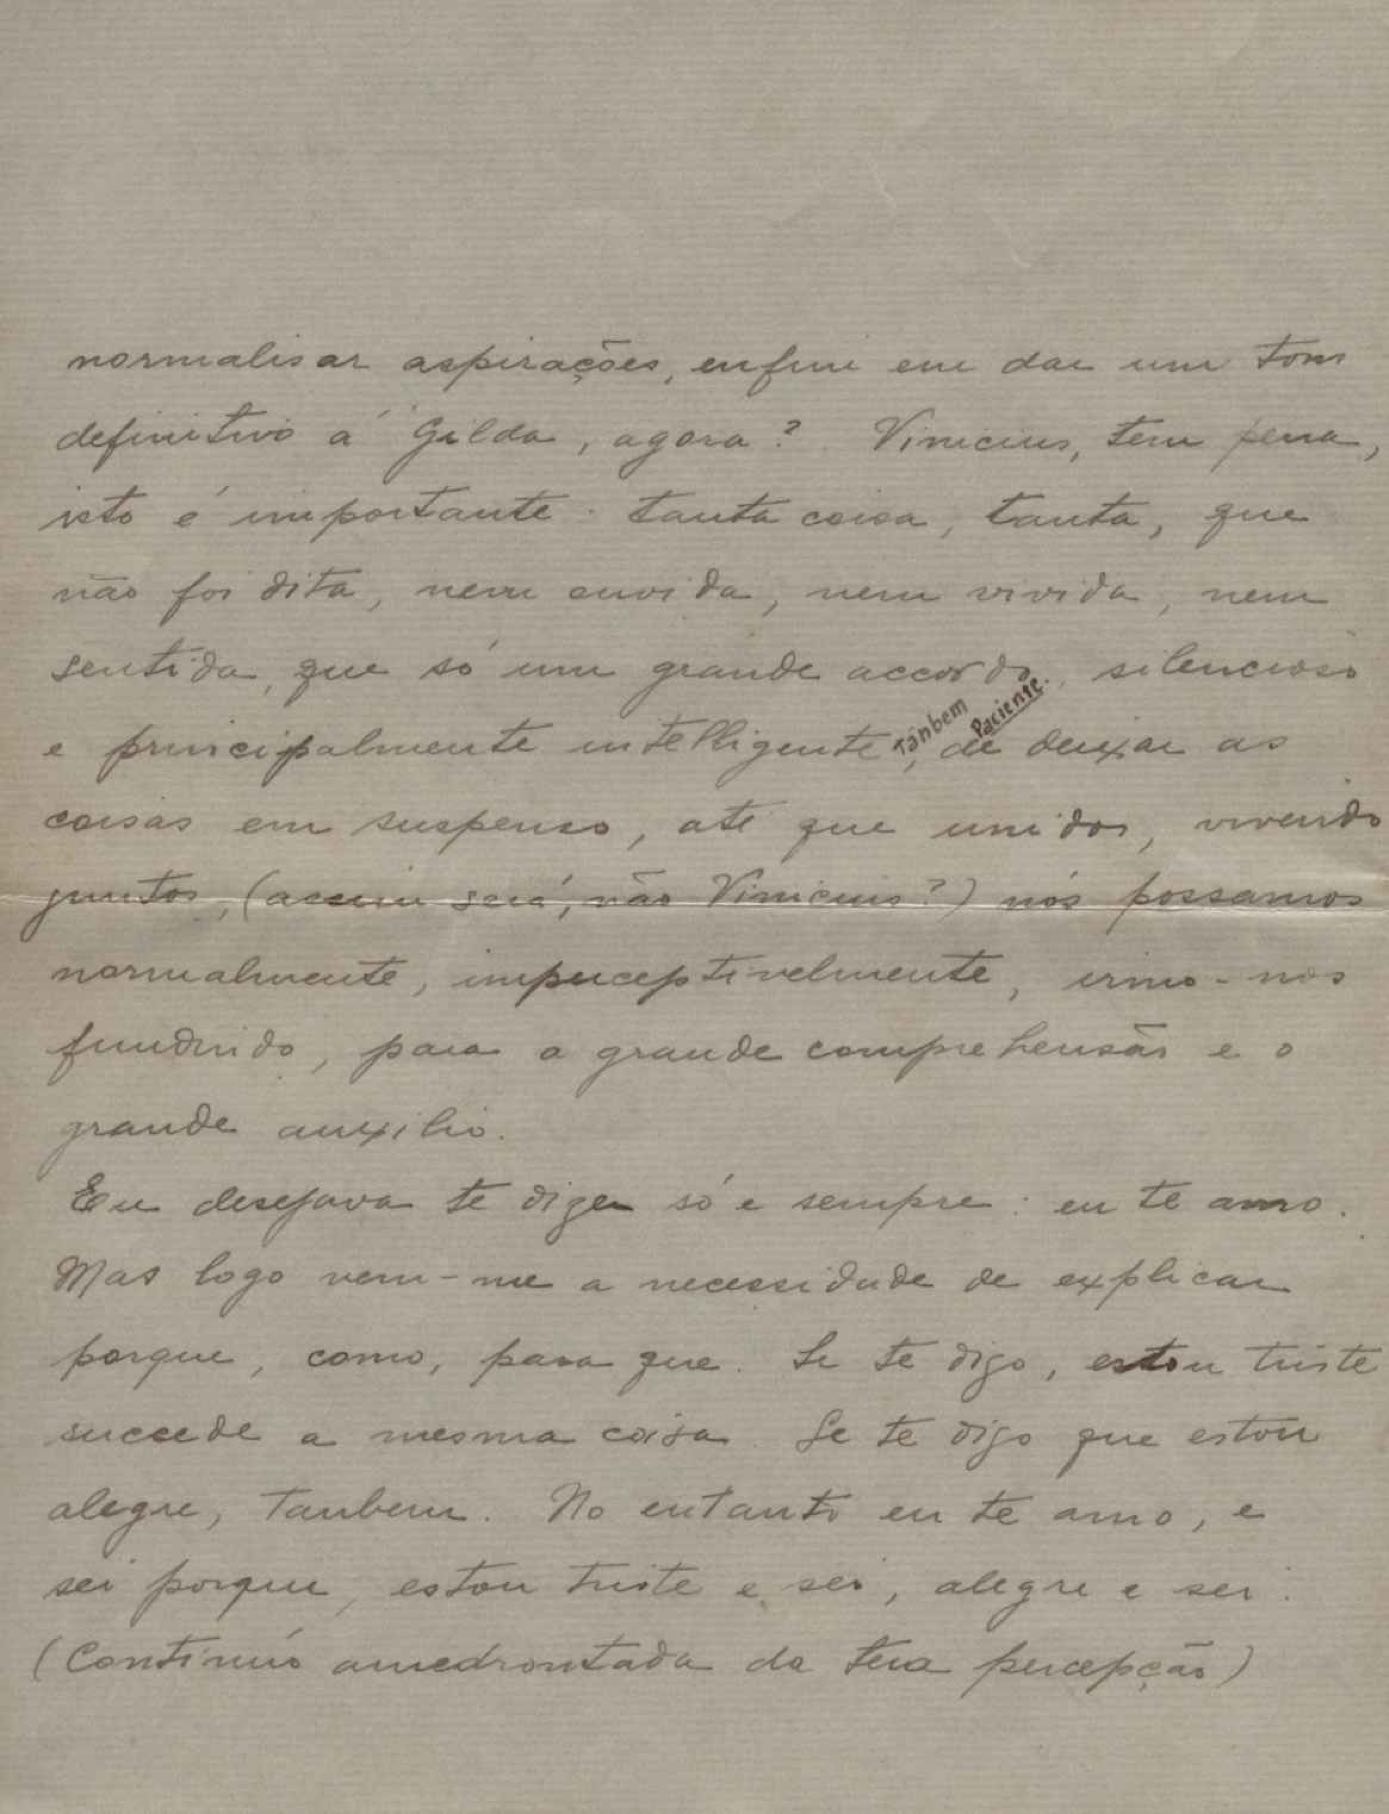 normalisar aspirações, enfim em dar um tom
definitivo á Gilda, agora? Vinicius, tem pena,
isto é importante. Tanta coisa, tanta, que
não foi dita, nem ouvida, nem vivida, nem
sentida, que só um grande accordo, silencioso
e principalmente intelligente, tãnbem paciente. de deixar as
coisas em suspenso, até que unidos, vivendo
juntos, (assim será, não Vinicius?) nós possamos
normalmente, imperceptivelmente, irmo-nos
fundindo, para a grande comprehensão e o
grande auxilio.
Eu desejava te dizer só e sempre: eu te amo.
Mas logo vem-me a necessidade de explicar
porque, como, para que. Se te digo, estou triste
succede a mesma coisa. Se te digo que estou
alegre, tambem. No entanto eu te amo, e
sei porque, estou triste e sei, alegre e sei.
(Continúo amedrontada da tua percepção)